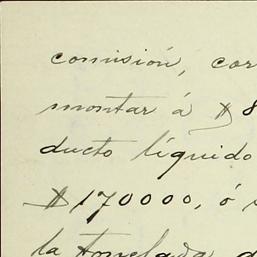 comisión, cor
montar á $ 8
ducto líquido
$ 170000, ó
la tonelada